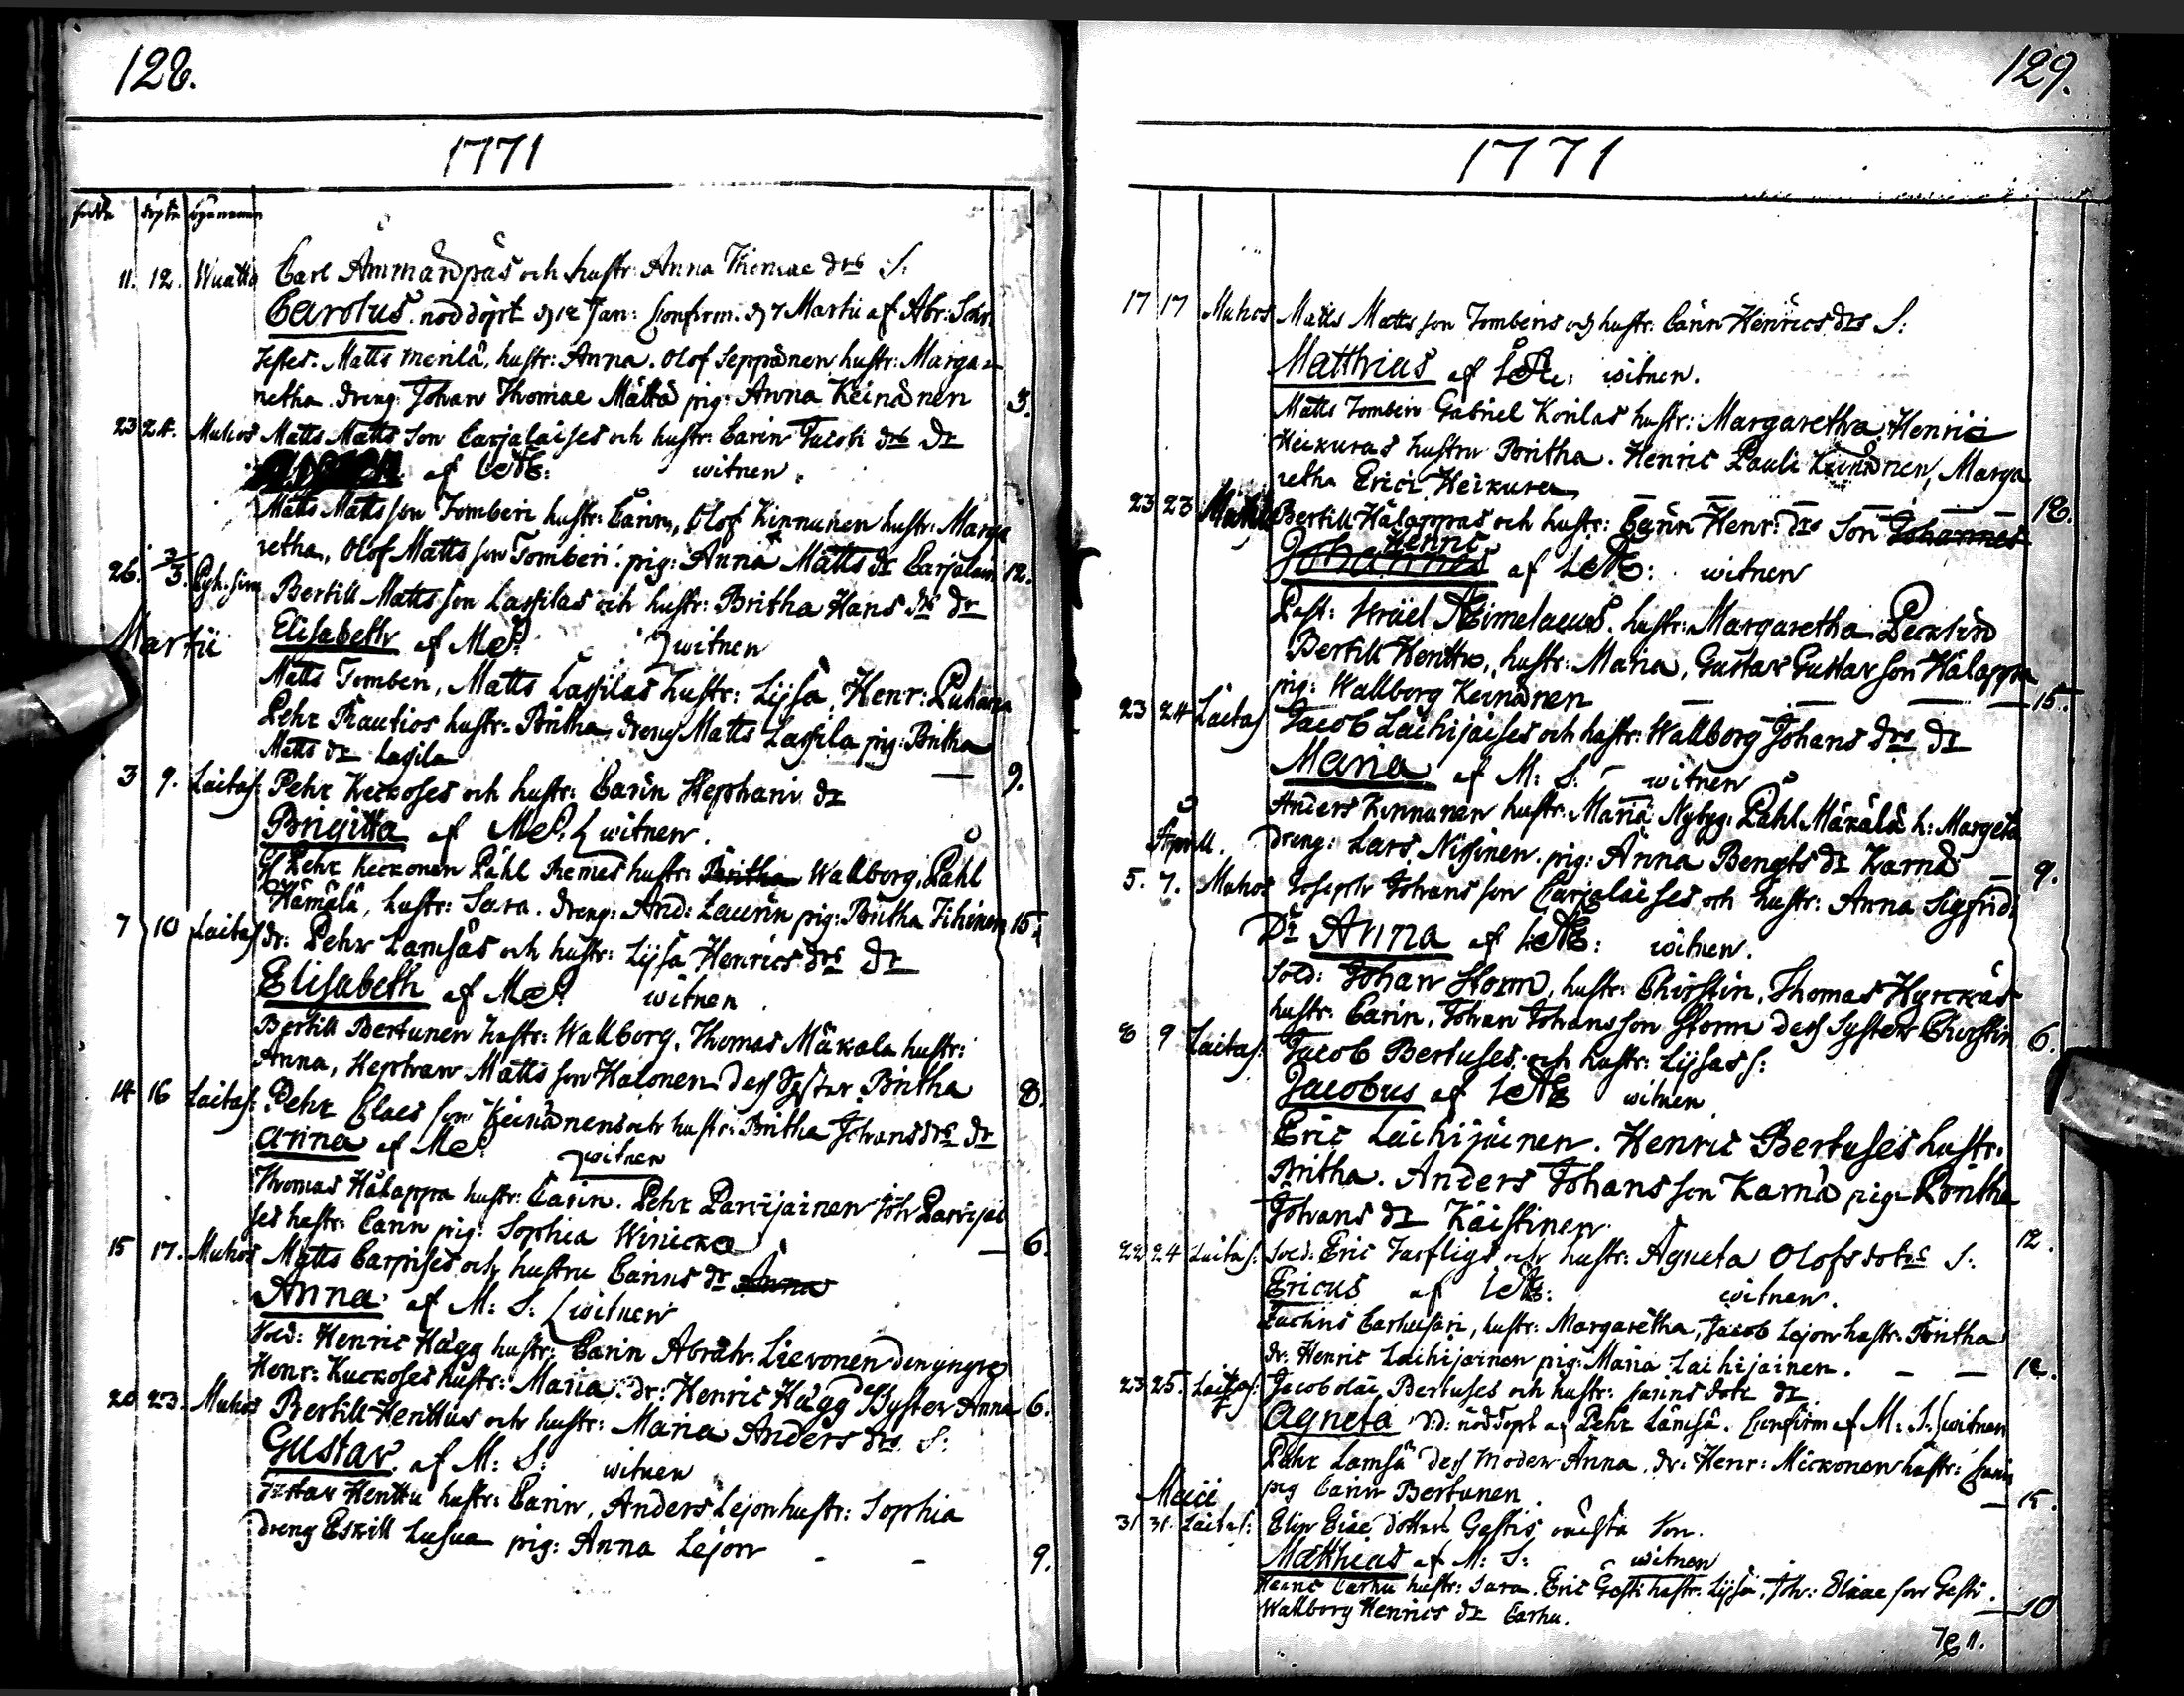 128.
1771
födde döpte byanamn
11. 12. Wuatto Carl Ämmänpäs och hustr: Anna Thomae drs S:
Carolus. nöddöpt d 12 Jan: Confirm. d 7 Martii af Abr:
Testes. Matts Merilä, hustr: Anna. Olof Seppänen hustr: Marga=
retha. dreng Johan Thomae Mätta pig: Anna Keinänen 3.
23 24. Muhos Matts Mattsson Carjalaises och hustr: Carin Jacobi drs dr
af witnen.
Matts Mattsson Tomberi hustr: Carin, Olof Kinnunen hustr: Marga
retha, Olof Mattsson Tomberi. pig: Anna Matts dr Carjalain 12.
26. 2/3. Bertill Mattsson Lassilas och hustr: Britha Hans drs dr
Martii
Elisabeth af M: S: witnen
Matts Tomberi, Matts Lassilas hustr: Lijsa, Henr: Puhaka
Pehr Rautios hustr: Britha, dreng Matts Lassila pig: Britha
Matts dr Lassila — 9.
3 9. Laitas: Pehr Keckoses och hustr: Carin Stephani dr
Brigitta af M: S: witnen.
Pehr Keckonen Påhl Remes hustr: Britha Wallborg, Påhl
Hämälä, hustr: Sara. dreng: And: Laurin pig: Britha Tihinen 15.
7 10 Laitas dr: Pehr Lamsas och hustr: Lijsa Henrics drs dr
Elisabeth af M: S: witnen.
Bertill Bertunen hustr: Wallborg. Thomas Mäkäla hustr:
Anna, Stephan Mattsson Halonen dess Syster Britha 8.
14 16 Laitas: Pehr Claesson Keinänens och hustr: Britha Johans drs dr
Anna af M: S: witnen
Thomas Hälappa hustr: Carin. Pehr Parvijainen Joh Parvijai
ses hustr: Carin pig: Sophia Winicka — 6.
15 17. Muhos Matts Carpises och hustru Carins dr Anna
Anna af M: S: witnen
Sold: Henric Hägg hustr: Carin Abrah: Lievonen den yngre
Henr: Kuckoses hustr: Maria. dr: Henric Hägg dess Syster Anna 6.
20 23. Muhos Bertill Henttus och hustr: Maria Anders drs S:
Gustav. af M: S: witnen
Gustav Henttu hustr: Carin, Anders Lejon hustr: Sophia
dreng Eskill Lusua pig: Anna Lejon - - 9.
129.
1771
17 17 Muhos Matts Mattsson Tomberis och hustr: Carin Henrics drs S:
Matthias af witnen.
Matts Tomberi Gabriel Korilas hustr: Margaretha, Henrici
Heikuras hustru Britha. Henric Pauli Keinänen, Marga
retha Erici Heikura — — — — — 12.
23 23 Bertill Hälappas och hustr: Carin Henr: drs Son Johannes
Henric
Johannes af witnen
Past: Israel hustr: Margaretha
Bertill Henttu, hustr: Maria, Gustav Gustavson Hälappa
pig: Wallborg Keinänen — — — — 15.
23 24 Laitas Jacob Laihijaises och hustr: Wallborg Johans drs dr
Maria af M: S: witnen
Anders Kinnunen hustr: Maria Nybyg: Påhl Mäkälä h: Margeta
April. dreng: Lars Nissinen. pig: Anna Bengts dr Karna — 9.
5. 7. Muhos Joseph Johansson Carjalaises och hustr: Anna Sigfrids
Dr Anna af witnen.
Sold: Johan Storm, hustr: Christin, Thomas Hyrckäs
hustr: Carin, Johan Johansson Storm dess Syster Christin 6.
8 9 Laitas: Jacob Bertuses och hustr: Lijsas S:
Jacobus af witnen
Eric Laihijainen. Henric Bertuses hustr.
Britha. Anders Johansson Karnä pig Britha
Johans dr Käistinen 12.
22 24 Laitas: Sold: Eric och hustr: Agneta Olofs dotrs S.
Ericus af witnen.
Zachris Carhusari, hustr: Margaretha, Jacob Lejon hustr: Britha
dr: Henric Laihijainen pig: Maria Laihijainen. — — 12.
23 25. Laitas: Jacob Olai Bertuses och hustr: Carins dotr dr
Agneta nöddöpt af Pehr Lämsä. Confirm af M: S: witnen
Pehr Lamsä dess Moder Anna. dr: Henr: Mickonen hustr: Carin
Maii pig Carin Bertunen — 15.
31 31. Laitas: Elin Eliae dotters Gestis oächta Son.
Matthias af M: S: witnen
Henric Carhu hustr: Sara. Eric Gesti hustr: Lijsa, Joh: Eliae son Gesti.
Wallborg Henrics dr Carhu. — 10